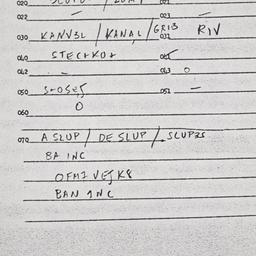 020
022 — 023 —
030 KANV3L / KANAL / GRIB 032 RIV
040 STECKKO+
042 - 043 0
050 052 —
0
060
070 A SLUP / DE SLUP / SLUP2S
BA INC
OFMI VEJK8
BAN 1NC